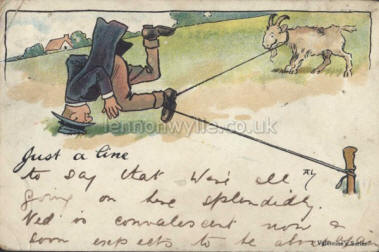 lennonwylie.co.uk
Just a line
to say that We're all
going on here splendidly.
Ned is convalescent now &
soon expects to be able